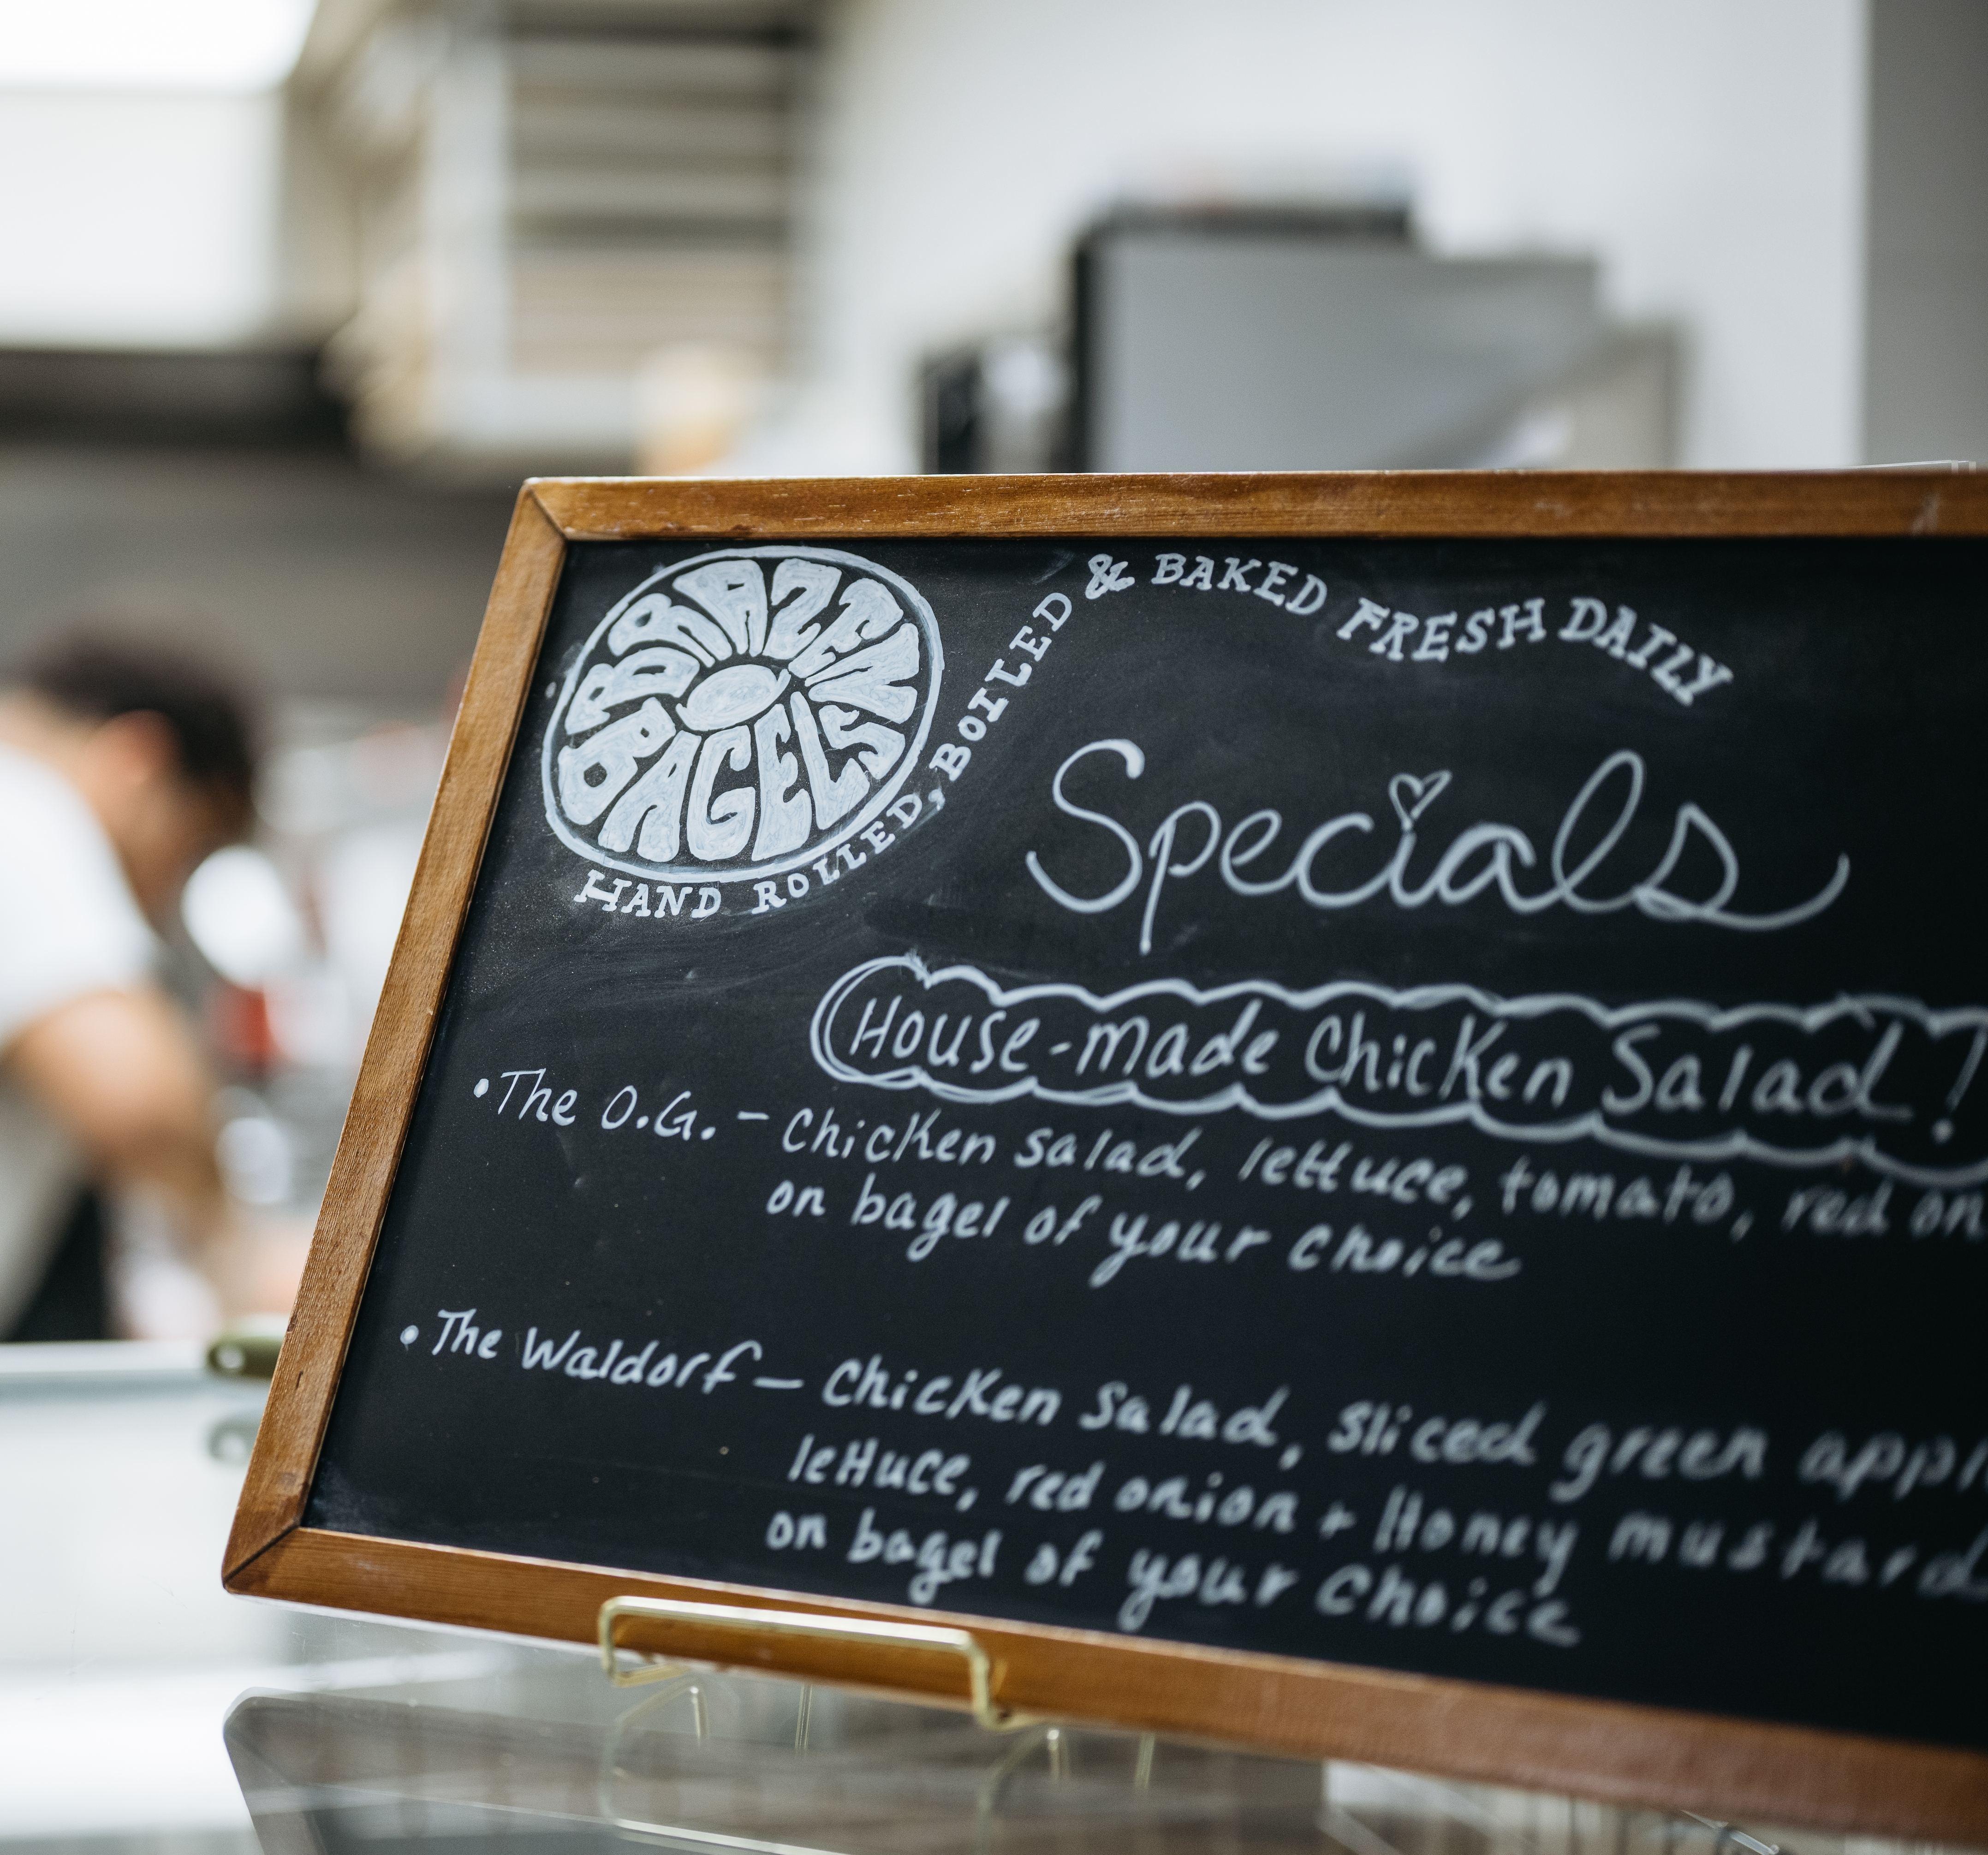 BRAZEN
BAGELS
HAND ROLLED, BOILED & BAKED FRESH DAILY
Specials
House-made Chicken Salad!
• The O.G. – Chicken salad, lettuce, tomato, red on
on bagel of your choice
• The Waldorf – Chicken Salad, sliced green appl
lettuce, red onion + Honey mustard
on bagel of your choice